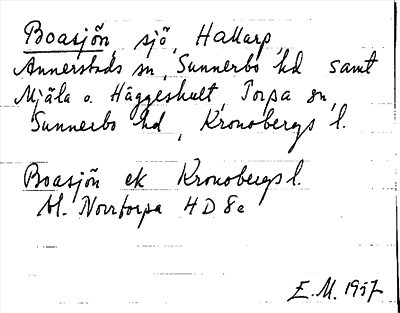 Boasjön, sjö, Hallarp,
Annerstads sn, Sunnerbo hd samt
Mjäla o. Häggeshult, Torpa sn,
Sunnerbo hd, Kronobergs l.
Boasjön ek Kronobergs l.
bl. Norrtorpa 4D8e
E.M. 1957